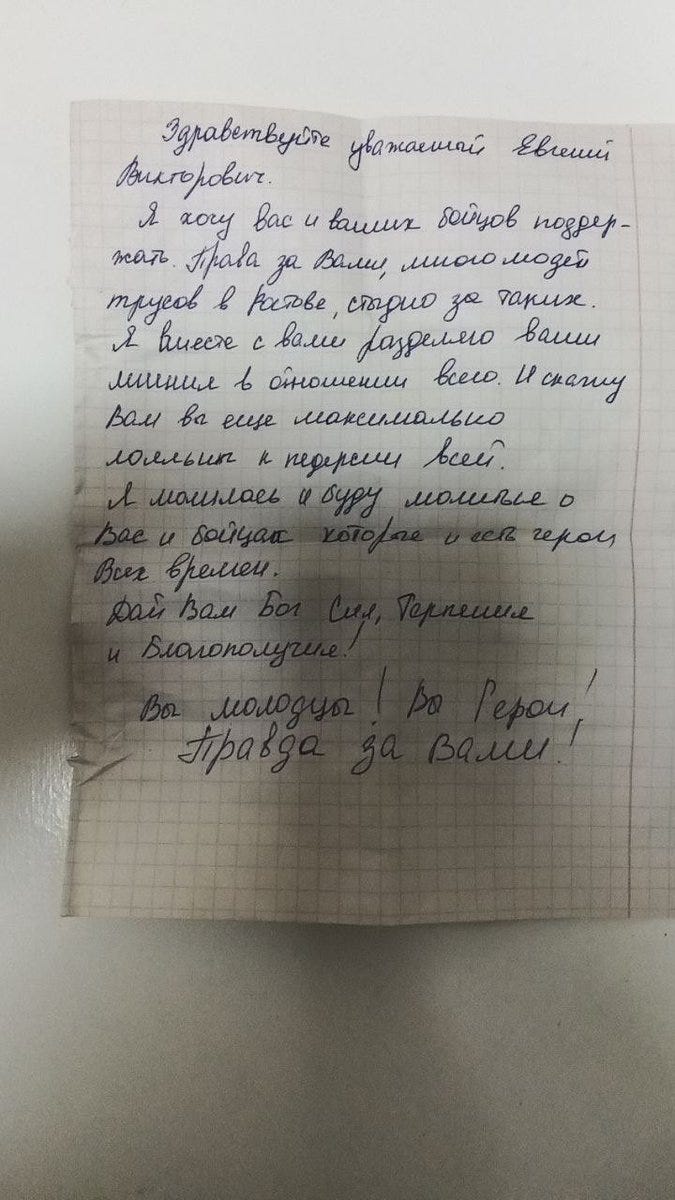 Здравствуйте уважаемый Евгений
Викторович.
Я хочу вас и ваших бойцов поддер-
жать. Права за Вами, много людей
трусов в Ростове, стыдно за таких.
Я вместе с вами разделяю ваши
мнения в отношении всего. И скажу
Вам вы еще максимально
лояльны к педерсии всей.
Я молилась и буду молиться о
Вас и бойцах которые и есть герои
Всех времен.
Дай Вам Бог Сил, Терпения
и Благополучия!
Вы молодцы! Вы Герои!
Правда за Вами!